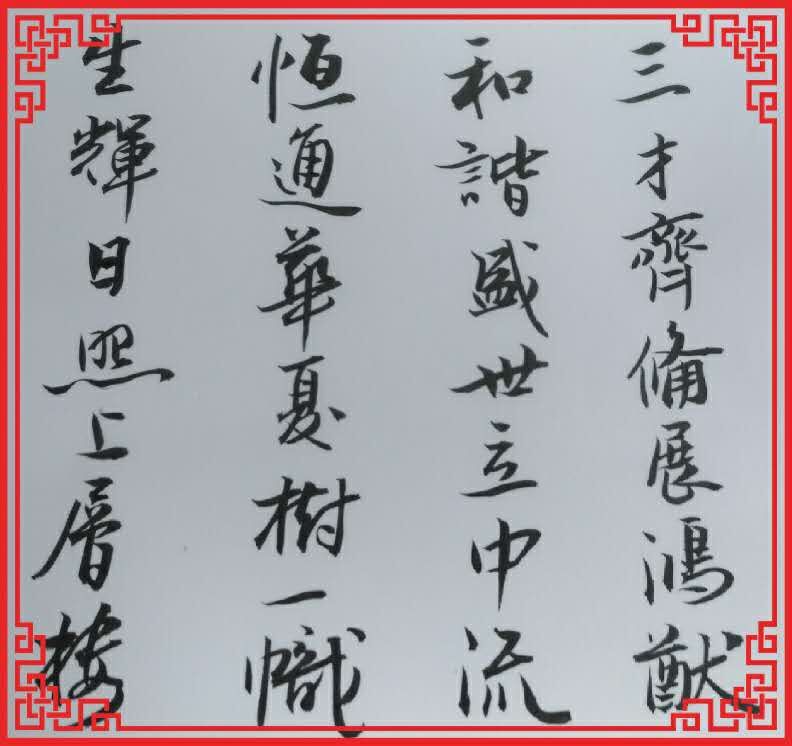 三才齊備展鴻猷
和諧盛世立中流
恒通華夏樹一幟
生輝日照上層樓